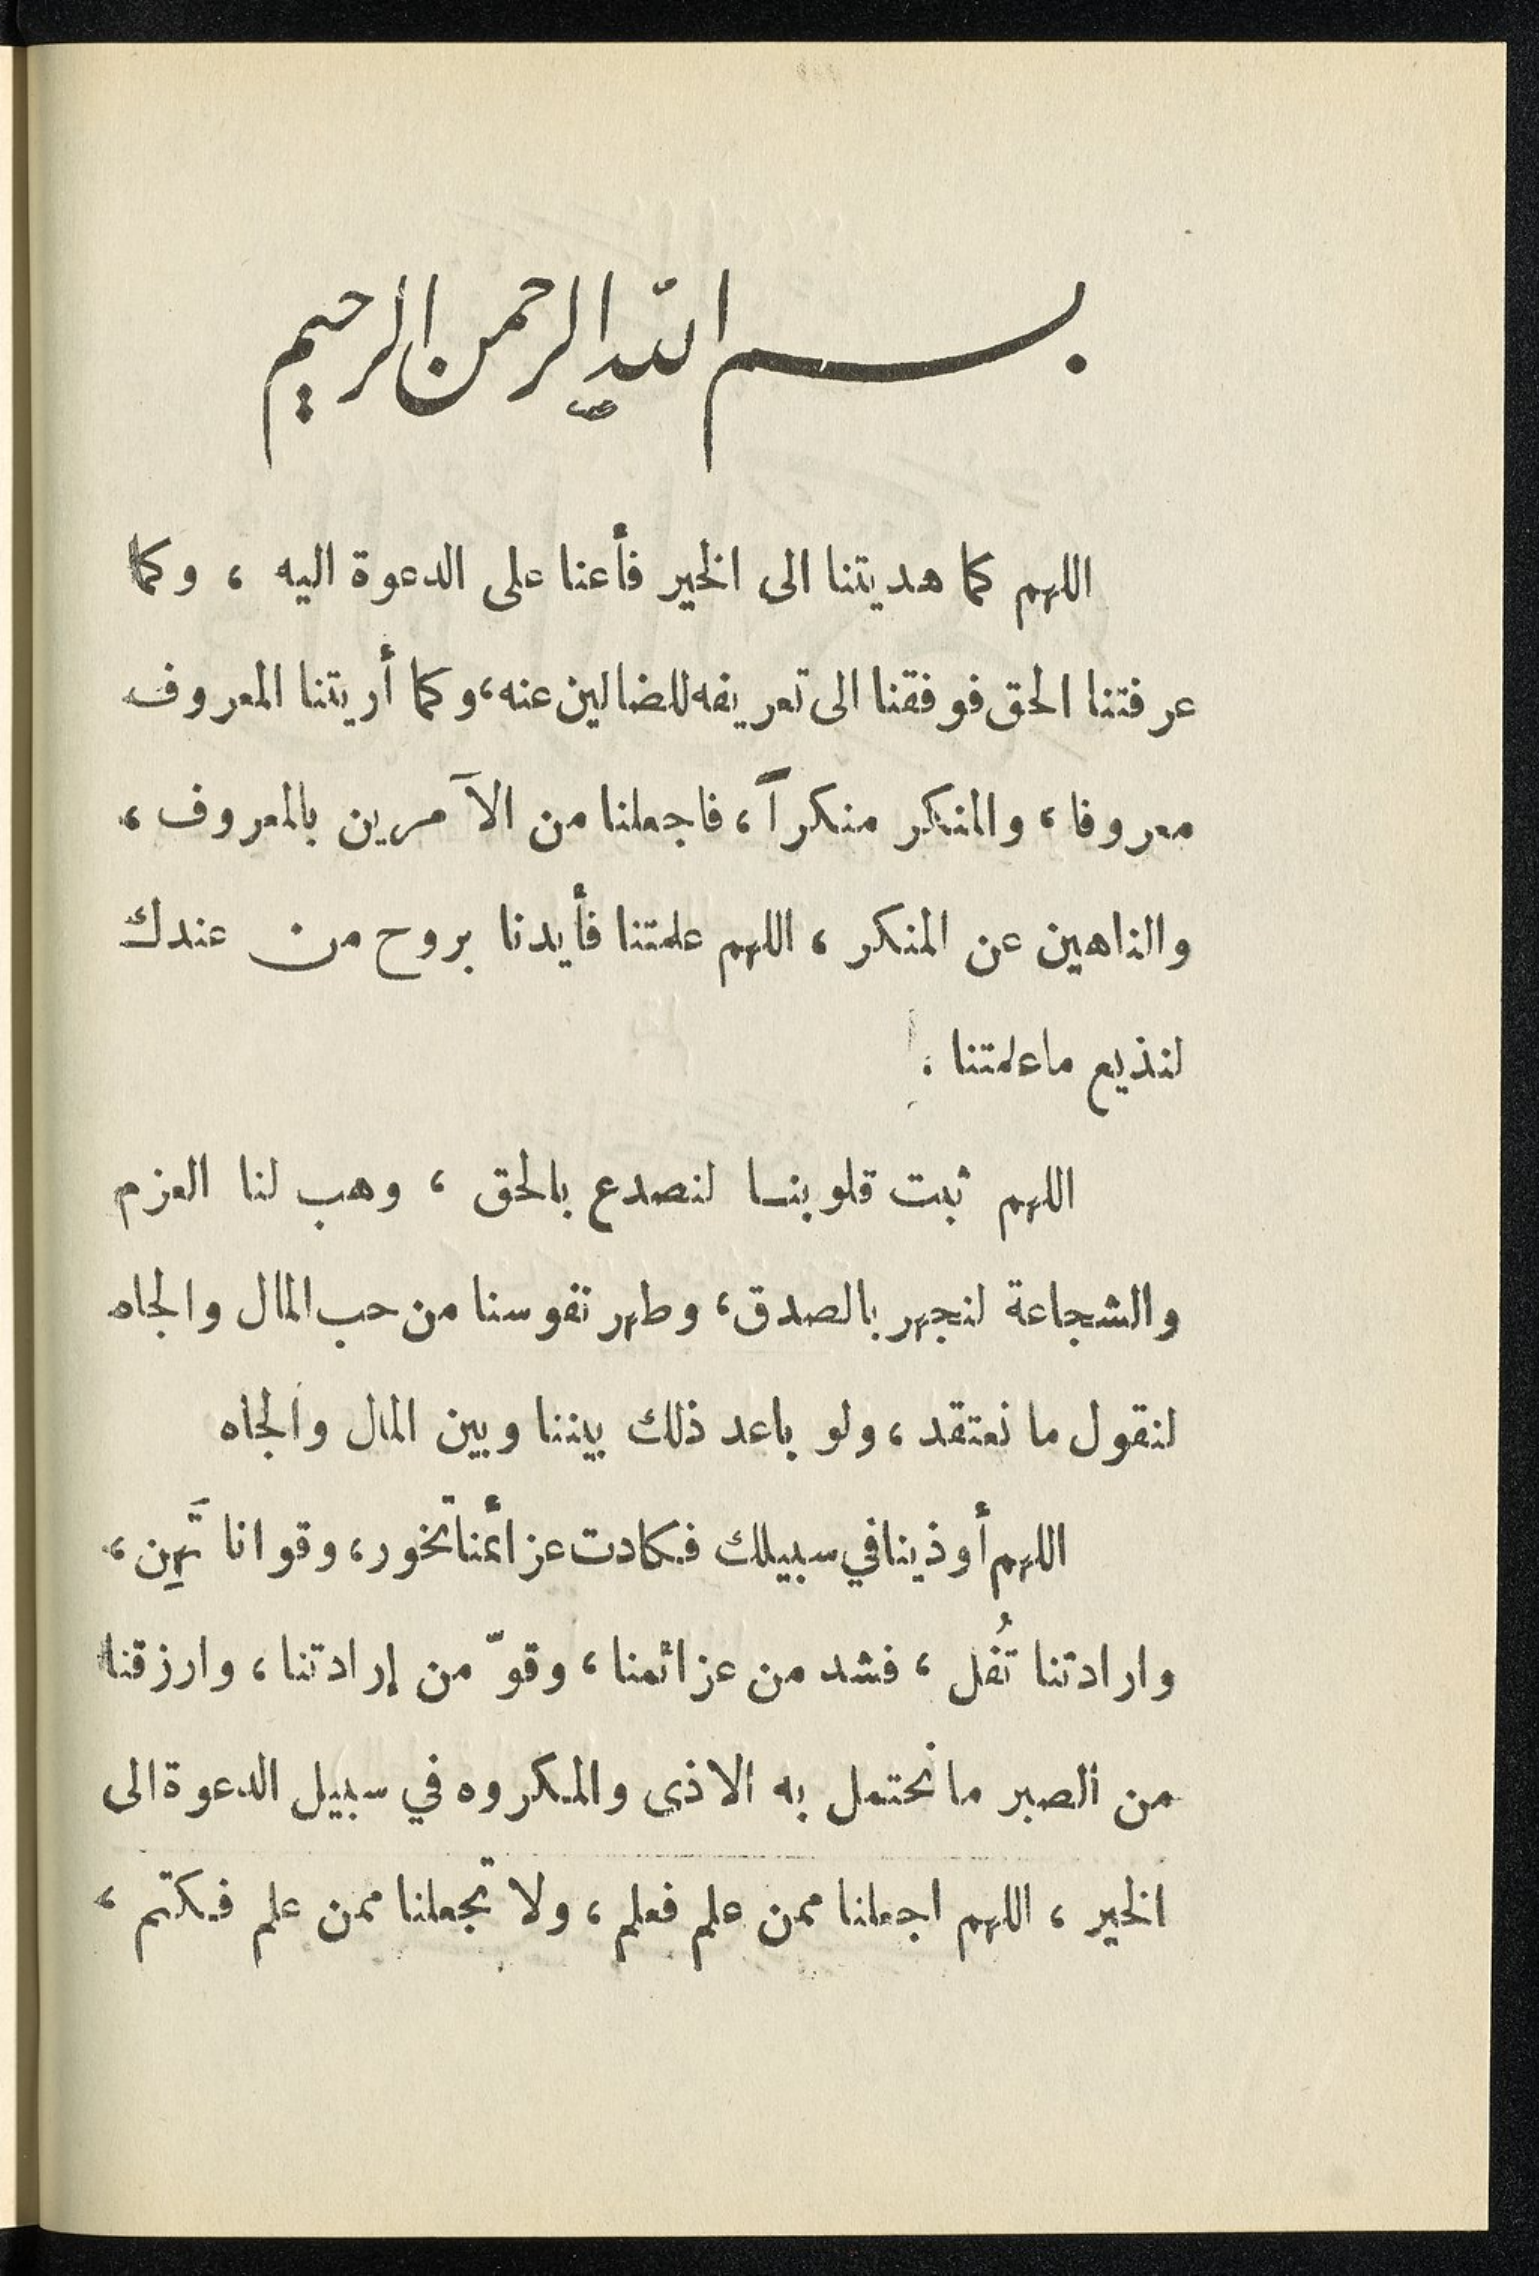 بسم الله الرحمن الرحيم
اللهم كما هديتنا الى الخير فأعنا على الدعوة اليه ، وكما
عرفتنا الحق فوفقنا الى تعريفه للضالين عنه، وكما أريتنا المعروف
معروفا ، والمنكر منكراً ، فاجعلنا من الآمرين بالمعروف ،
والناهين عن المنكر ، اللهم علمتنا فأيدنا بروح من عندك
لنذيع ما علمتنا .
اللهم ثبت قلوبنا لنصدع بالحق ، وهب لنا العزم
والشجاعة لنجهر بالصدق ، وطهر نفوسنا من حب المال والجاه
لنقول ما نعتقد ، ولو باعد ذلك بيننا وبين المال والجاه
اللهم أوذينا في سبيلك فكادت عزائمنا تخور ، وقوانا تَهِن ،
وارادتنا تُفل ، فشد من عزائمنا ، وقوّ من إرادتنا ، وارزقنا
من الصبر ما نحتمل به الاذى والمكروه في سبيل الدعوة الى
الخير ، اللهم اجعلنا ممن علم فعلم ، ولا تجعلنا ممن علم فكتم ،